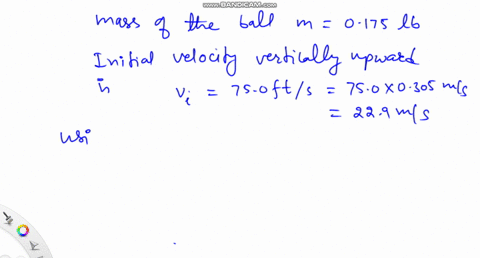 WWW.BANDICAM.COM
mass of the ball m = 0.175 lb
Initial velocity vertically upward
is v_i = 75.0 ft/s = 75.0 × 0.305 m/s
= 22.9 m/s
usi